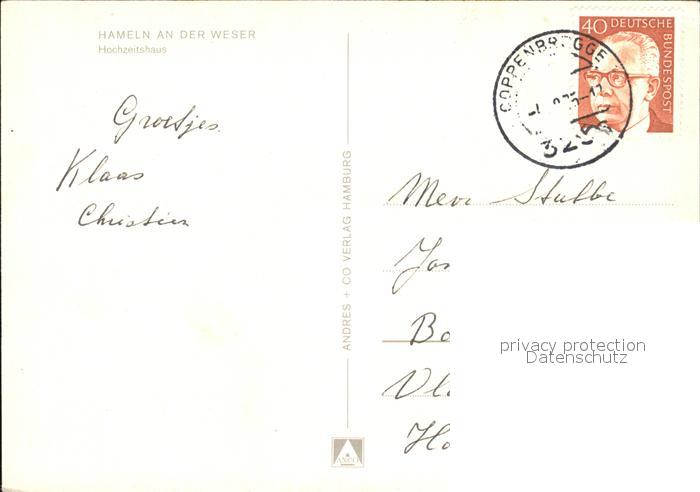 HAMELN AN DER WESER
Hochzeitshaus
Groetjes
Klaas
Christien
ANDRES + CO VERLAG HAMBURG
ANCO
40 DEUTSCHE BUNDESPOST
COPPENBRÜGGE
325
Mevr Stulbe
Jos
Bo
Vl
Ho
privacy protection
Datenschutz